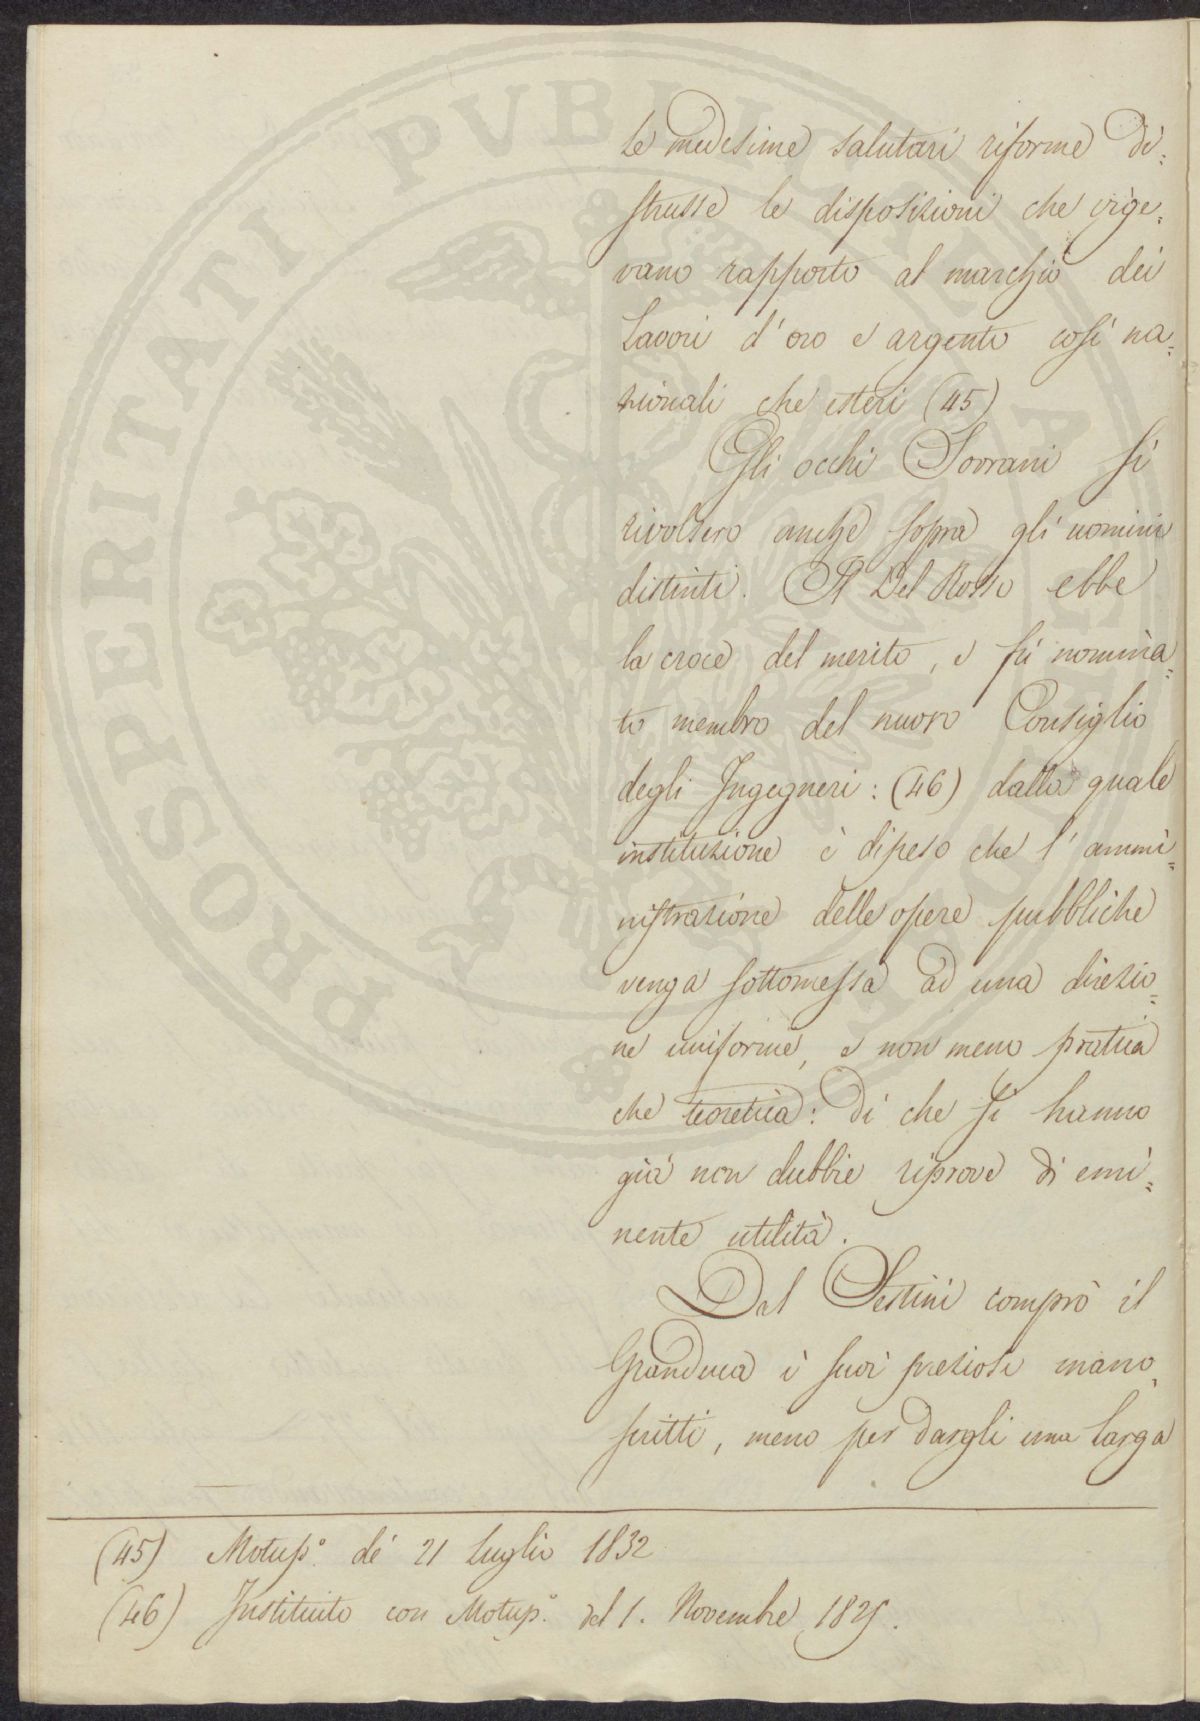 le medesime salutari riforme di=
strusse le disposizioni che vige=
vano rapporto al marchio dei
Lavori d'oro e argento così na=
zionali che esteri (45)
Gli occhi Sovrani si
rivolsero anche sopra gli uomini
distinti. Il Del Rosso ebbe
la croce del merito, e fù nomina=
to membro del nuovo Consiglio
degli Ingegneri: (46) dalla quale
instituzione è dipeso che l'ammi=
nistrazione delle opere pubbliche
venga sottomessa ad una direzio=
ne uniforme, e non meno pratica
che teoretica: di che si hanno
già non dubbie riprove di emi=
nente utilità.
Dal Sestini comprò il
Granduca i suoi preziosi mano=
scritti, meno per dargli una larga
(45) Motup.º de' 21 Luglio 1832
(46) Instituito con Motup.º del 1. Novembre 1825.
PROSPERITATI PVBLICAE